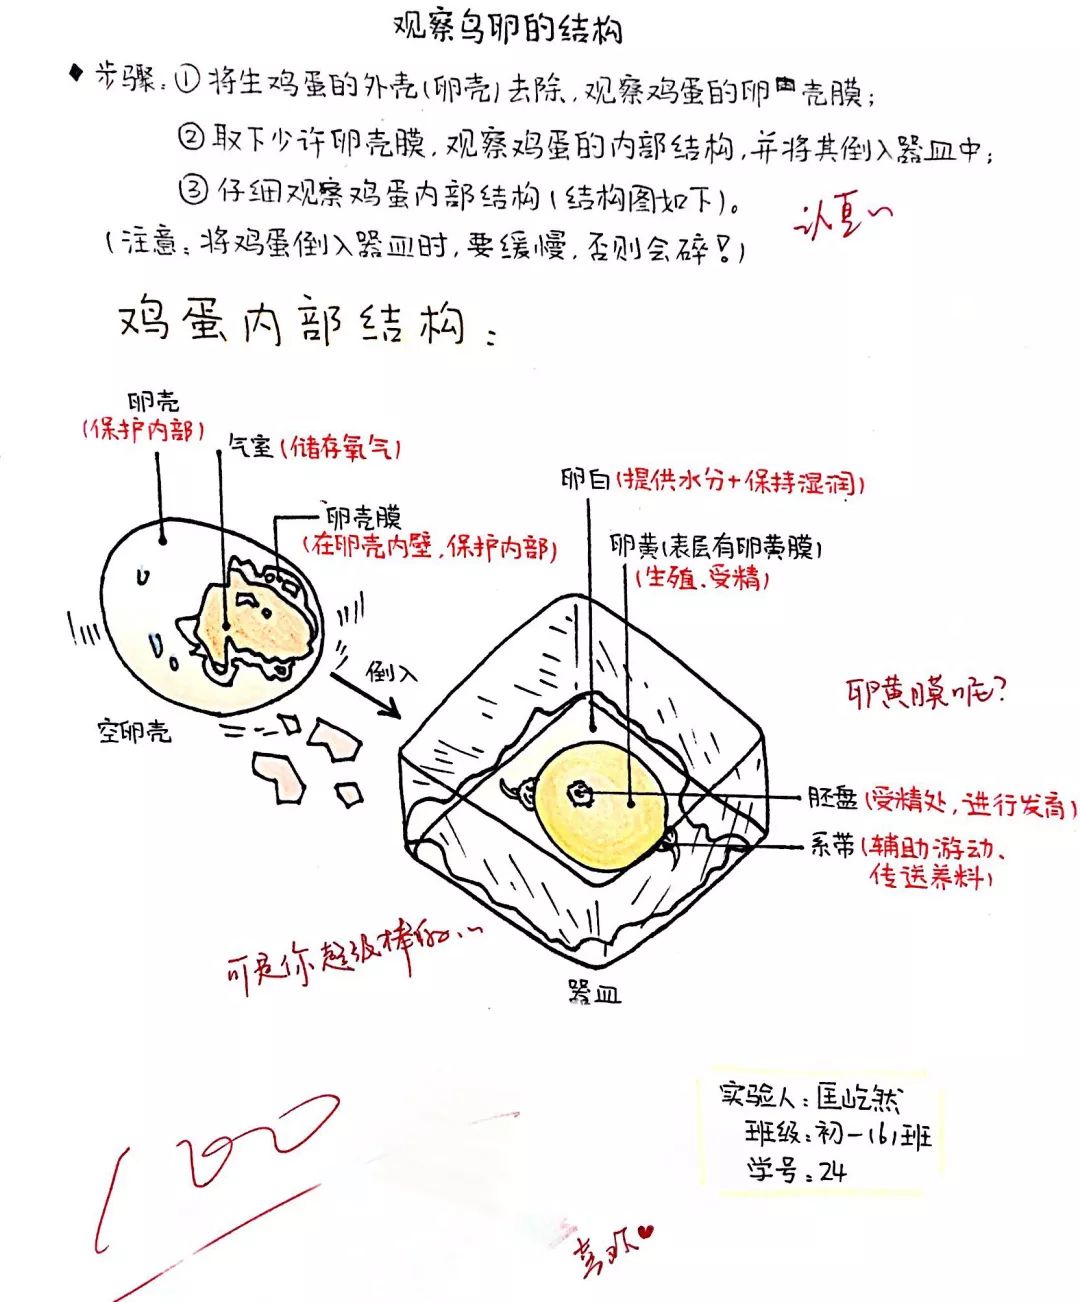 观察鸟卵的结构
◆ 步骤：①将生鸡蛋的外壳(卵壳)去除，观察鸡蛋的卵壳膜；
②取下少许卵壳膜，观察鸡蛋的内部结构，并将其倒入器皿中；
③仔细观察鸡蛋内部结构(结构图如下)。
认真~
(注意：将鸡蛋倒入器皿时，要缓慢，否则会碎！)
鸡蛋内部结构：
卵壳
(保护内部)
气室(储存氧气)
卵壳膜
(在卵壳内壁，保护内部)
卵白(提供水分+保持湿润)
卵黄(表层有卵黄膜)
(生殖、受精)
倒入
空卵壳
卵黄膜呢？
胚盘(受精处，进行发育)
系带(辅助游动、
传送养料)
可是你超级棒的...~
器皿
实验人：匡屹然
班级：初一(6)班
学号：24
100
喜欢♥